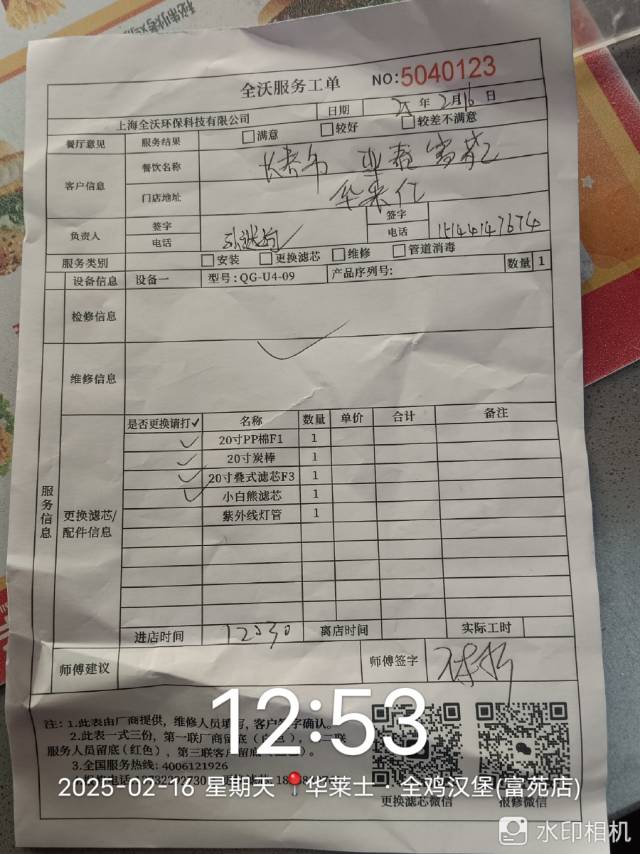 全沃服务工单 NO:5040123
上海全沃环保科技有限公司 日期 25年2月16日
餐厅意见 服务结果 满意 较好 较差不满意
客户信息 餐饮名称 长春市
门店地址 华莱仕
负责人 签字 签字
电话 电话 15144147674
服务类别 安装 更换滤芯 维修 管道消毒
设备信息 设备一 型号:QG-U4-09 产品序列号: 数量 1
检修信息
维修信息
服务信息
更换滤芯/配件信息
是否更换请打✓ 名称 数量 单价 合计 备注
✓ 20寸PP棉F1 1
✓ 20寸炭棒 1
✓ 20寸叠式滤芯F3 1
✓ 小白熊滤芯 1
紫外线灯管 1
进店时间 12:30 离店时间 实际工时
师傅建议 师傅签字
注:1.此表由厂商提供,维修人员填写,客户签字确认。
2.此表一式三份,第一联厂商留底(白色),第二联
服务人员留底(红色),第三联客户留底
3.全国服务热线:4006121926
更换滤芯微信 报修微信
12:53
2025-02-16 星期天 华莱士·全鸡汉堡(富苑店)
水印相机